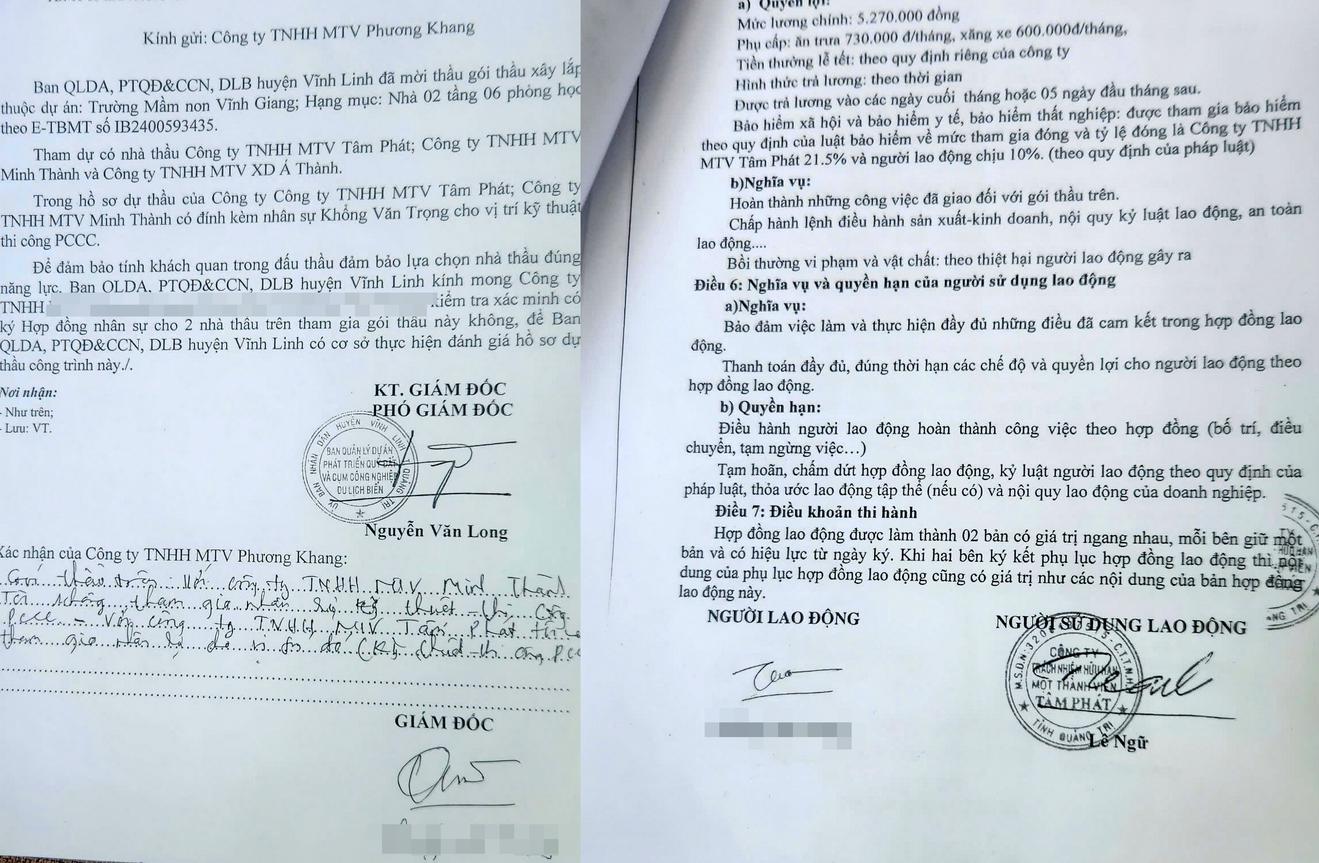 Kính gửi: Công ty TNHH MTV Phương Khang
Ban QLDA, PTQĐ&CCN, DLB huyện Vĩnh Linh đã mời thầu gói thầu xây lắp
thuộc dự án: Trường Mầm non Vĩnh Giang; Hạng mục: Nhà 02 tầng 06 phòng học
theo E-TBMT số IB2400593435.
Tham dự có nhà thầu Công ty TNHH MTV Tâm Phát; Công ty TNHH MTV
Minh Thành và Công ty TNHH MTV XD Á Thành.
Trong hồ sơ dự thầu của Công ty Công ty TNHH MTV Tâm Phát; Công ty
TNHH MTV Minh Thành có đính kèm nhân sự Khổng Văn Trọng cho vị trí kỹ thuật
thi công PCCC.
Để đảm bảo tính khách quan trong đấu thầu đảm bảo lựa chọn nhà thầu đúng
năng lực. Ban QLDA, PTQĐ&CCN, DLB huyện Vĩnh Linh kính mong Công ty
TNHH kiểm tra xác minh có
ký Hợp đồng nhân sự cho 2 nhà thầu trên tham gia gói thầu này không, để Ban
QLDA, PTQĐ&CCN, DLB huyện Vĩnh Linh có cơ sở thực hiện đánh giá hồ sơ dự
thầu công trình này./.
Nơi nhận:
- Như trên;
- Lưu: VT.
KT. GIÁM ĐỐC
PHÓ GIÁM ĐỐC
ỦY BAN NHÂN DÂN HUYỆN VĨNH LINH T. QUẢNG TRỊ
BAN QUẢN LÝ DỰ ÁN
PHÁT TRIỂN QUỸ ĐẤT
VÀ CỤM CÔNG NGHIỆP
DU LỊCH BIỂN
Nguyễn Văn Long
Xác nhận của Công ty TNHH MTV Phương Khang:
Gói thầu trên với công ty TNHH MTV Minh Thành
Tôi không tham gia nhân sự kỹ thuật thi công
PCCC - Với công ty TNHH MTV Tâm Phát tôi có
tham gia nhân sự kỹ thuật thi công PCCC
GIÁM ĐỐC
a) Quyền lợi:
Mức lương chính: 5.270.000 đồng
Phụ cấp: ăn trưa 730.000 đ/tháng, xăng xe 600.000đ/tháng,
Tiền thưởng lễ tết: theo quy định riêng của công ty
Hình thức trả lương: theo thời gian
Được trả lương vào các ngày cuối tháng hoặc 05 ngày đầu tháng sau.
Bảo hiểm xã hội và bảo hiểm y tế, bảo hiểm thất nghiệp: được tham gia bảo hiểm
theo quy định của luật bảo hiểm về mức tham gia đóng và tỷ lệ đóng là Công ty TNHH
MTV Tâm Phát 21.5% và người lao động chịu 10%. (theo quy định của pháp luật)
b)Nghĩa vụ:
Hoàn thành những công việc đã giao đối với gói thầu trên.
Chấp hành lệnh điều hành sản xuất-kinh doanh, nội quy kỷ luật lao động, an toàn
lao động....
Bồi thường vi phạm và vật chất: theo thiệt hại người lao động gây ra
Điều 6: Nghĩa vụ và quyền hạn của người sử dụng lao động
a)Nghĩa vụ:
Bảo đảm việc làm và thực hiện đầy đủ những điều đã cam kết trong hợp đồng lao
động.
Thanh toán đầy đủ, đúng thời hạn các chế độ và quyền lợi cho người lao động theo
hợp đồng lao động.
b) Quyền hạn:
Điều hành người lao động hoàn thành công việc theo hợp đồng (bố trí, điều
chuyển, tạm ngừng việc...)
Tạm hoãn, chấm dứt hợp đồng lao động, kỷ luật người lao động theo quy định của
pháp luật, thỏa ước lao động tập thể (nếu có) và nội quy lao động của doanh nghiệp.
Điều 7: Điều khoản thi hành
Hợp đồng lao động được làm thành 02 bản có giá trị ngang nhau, mỗi bên giữ một
bản và có hiệu lực từ ngày ký. Khi hai bên ký kết phụ lục hợp đồng lao động thì nội
dung của phụ lục hợp đồng lao động cũng có giá trị như các nội dung của bản hợp đồng
lao động này.
NGƯỜI LAO ĐỘNG
NGƯỜI SỬ DỤNG LAO ĐỘNG
CÔNG TY
TRÁCH NHIỆM HỮU HẠN
MỘT THÀNH VIÊN
TÂM PHÁT
TỈNH QUẢNG TRỊ
Lê Ngữ